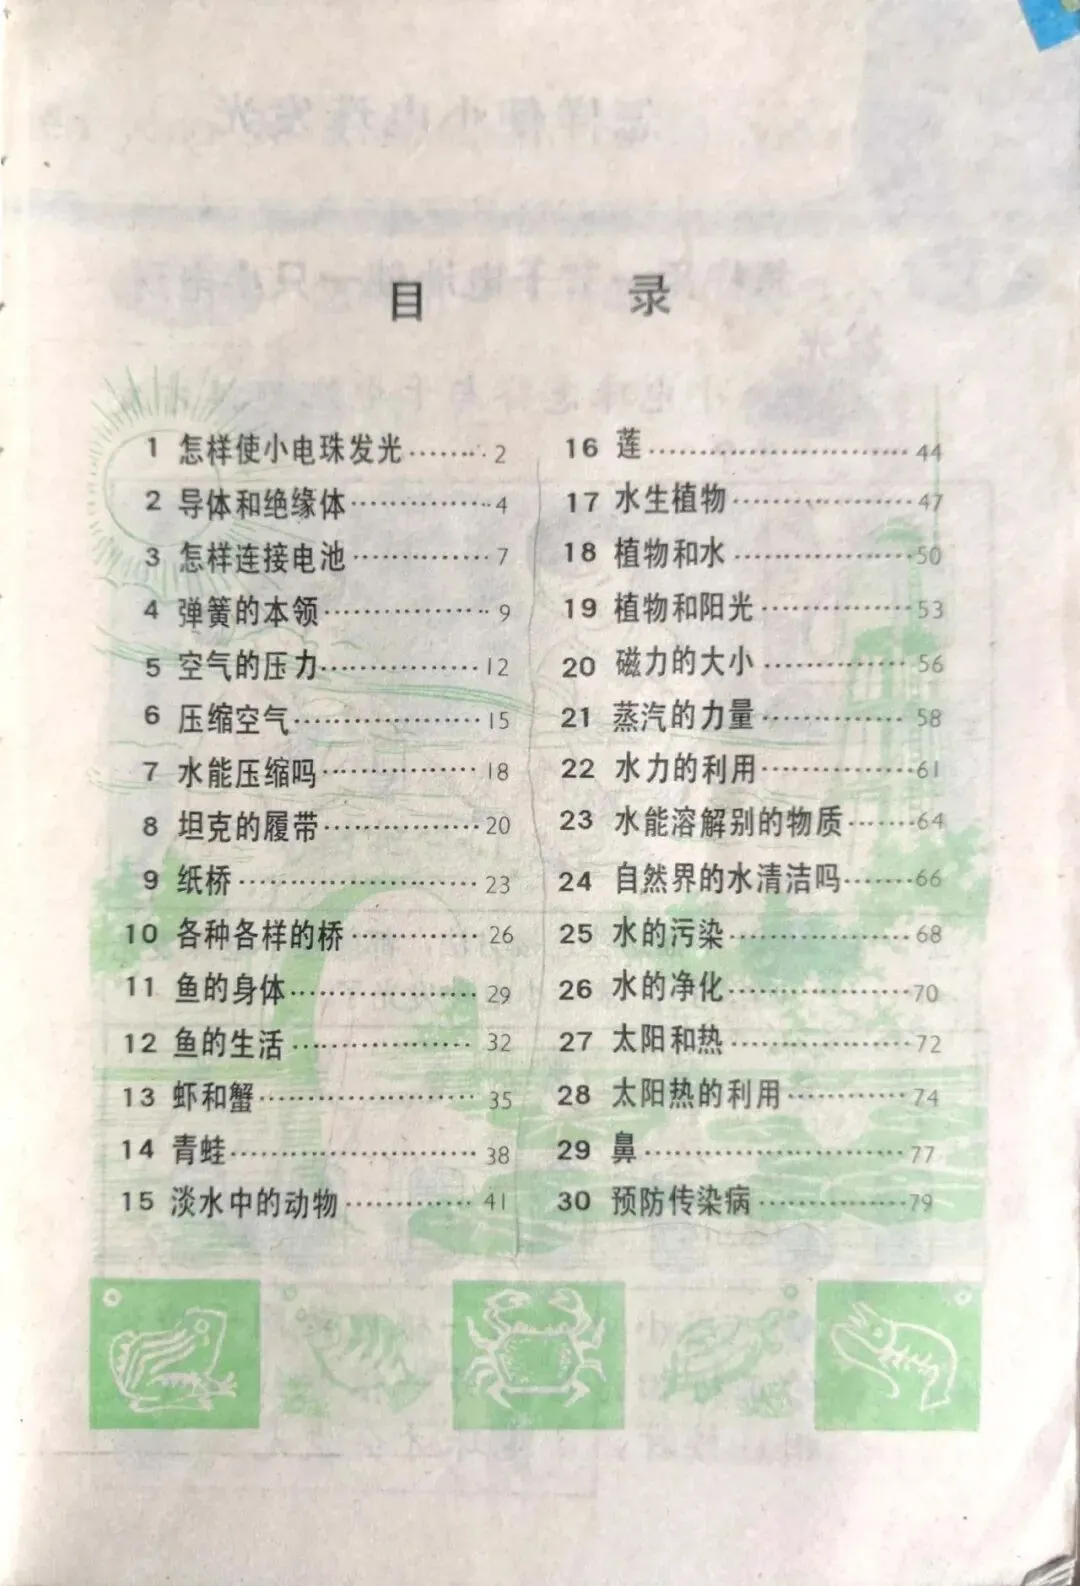 目 录
1 怎样使小电珠发光………2
2 导体和绝缘体……………4
3 怎样连接电池……………7
4 弹簧的本领………………9
5 空气的压力………………12
6 压缩空气…………………15
7 水能压缩吗………………18
8 坦克的履带………………20
9 纸桥………………………23
10 各种各样的桥……………26
11 鱼的身体…………………29
12 鱼的生活…………………32
13 虾和蟹……………………35
14 青蛙………………………38
15 淡水中的动物……………41
16 莲…………………………44
17 水生植物…………………47
18 植物和水…………………50
19 植物和阳光………………53
20 磁力的大小………………56
21 蒸汽的力量………………58
22 水力的利用………………61
23 水能溶解别的物质………64
24 自然界的水清洁吗………66
25 水的污染…………………68
26 水的净化…………………70
27 太阳和热…………………72
28 太阳热的利用……………74
29 鼻…………………………77
30 预防传染病………………79